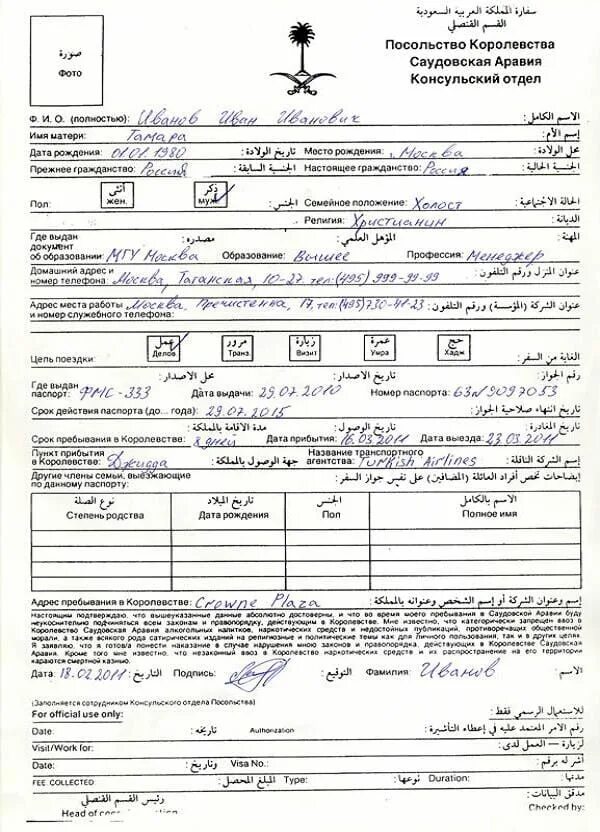 سفارة المملكة العربية السعودية
القسم القنصلي
Посольство Королевства
Саудовская Аравия
Консульский отдел
صورة
Фото
Ф. И. О. (полностью): Иванов Иван Иванович الاسم الكامل :
Имя матери: Тамара إسم الأم :
Дата рождения: 01.01.1980 تاريخ الولادة : Место рождения: Москва محل الولادة :
Прежнее гражданство: Россия الجنسية السابقة : Настоящее гражданство: Россия الجنسية الحالية :
Пол: أنثى жен. ذكر муж. الجنس : Семейное положение: Холост الحالة الاجتماعية :
Религия: Христианин الديانة :
Где выдан документ об образовании: МГУ Москва مصدره : Образование: Высшее المؤهل العلمي : Профессия: Менеджер المهنة :
Домашний адрес и номер телефона: Москва, Таганская, 10-27. тел:(495) 999-99-99 عنوان المنزل ورقم التلفون :
Адрес места работы и номер служебного телефона: Москва, Пречистенка, 17, тел:(495)730-41-23 عنوان الشركة (المؤسسة) ورقم التلفون :
Цель поездки: عمل Делов. مرور Транз. زيارة Визит عمرة Умра حج Хадж الغاية من السفر :
Где выдан паспорт: ФМС-333 محل الاصدار : Дата выдачи: 29.07.2010 تاريخ الاصدار : Номер паспорта: 63№9097053 رقم الجواز :
Срок действия паспорта (до... года): 29.07.2015 تاريخ انتهاء صلاحية الجواز :
Срок пребывания в Королевстве: 8 дней مدة الاقامة بالمملكة : Дата прибытия: 16.03.2011 تاريخ الوصول : Дата выезда: 23.03.2011 تاريخ المغادرة :
Пункт прибытия в Королевстве: Джидда جهة الوصول بالمملكة : Название транспортного агентства: Turkish Airlines إسم الشركة الناقلة :
Другие члены семьи, выезжающие по данному паспорту: إيضاحات تخص أفراد العائلة (المضافين) على نفس جواز السفر :
نوع الصلة تاريخ الميلاد الجنس الاسم بالكامل
Степень родства Дата рождения Пол Полное имя
Адрес пребывания в Королевстве: Crowne Plaza إسم وعنوان الشركة أو إسم الشخص وعنوانه بالمملكة :
Настоящим подтверждаю, что вышеуказанные данные абсолютно достоверны, и что во время моего пребывания в Саудовской Аравии буду
неукоснительно подчиняться всем законам и правопорядку, действующим в Королевстве. Мне известно, что категорически запрещен ввоз в
Королевство Саудовская Аравия алкогольных напитков, наркотических средств и недостойных публикаций, противоречащих общественной
морали, а также всякого рода сатирических изданий на религиозные и политические темы как для личного пользования, так и в других целях.
Я заявляю, что я готов/а понести наказание в случае нарушения мною законов и правопорядка, действующих в Королевстве Саудовская
Аравия. Кроме того мне известно, что незаконный ввоз в Королевство наркотических средств и их распространение на его территории
караются смертной казнью.
Дата: 18.02.2011 التاريخ : Подпись: التوقيع : Фамилия: Иванов الاسم :
(Заполняется сотрудником Консульского отдела Посольства)
For official use only: للاستعمال الرسمي فقط :
Date: تاريخه : Authorization رقم الامر المعتمد عليه في إعطاء التأشيرة :
Visit/Work for: لزيارة — العمل لدى :
Date: وتاريخ : Visa No.: أشر له برقم :
FEE COLLECTED المبلغ المحصل : Type: نوعها : Duration: مدتها :
رئيس القسم القنصلي مدقق البيانات :
Head of Checked by: